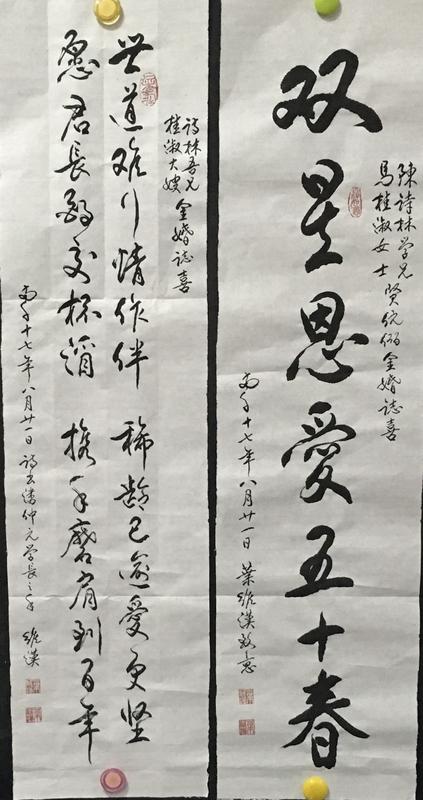 陳詩林学兄
馬桂淑女士 賢伉俪金婚誌喜
双星恩愛五十春
両千十七年八月廿一日 葉維漢致意
詩林吾兄
桂淑大嫂 金婚誌喜
世道难行情作伴 稀龄已逾愛更坚
愿君長飲交杯酒 携手磨肩到百年
両千十七年八月廿日 詩出潘仲元学長之手 維漢